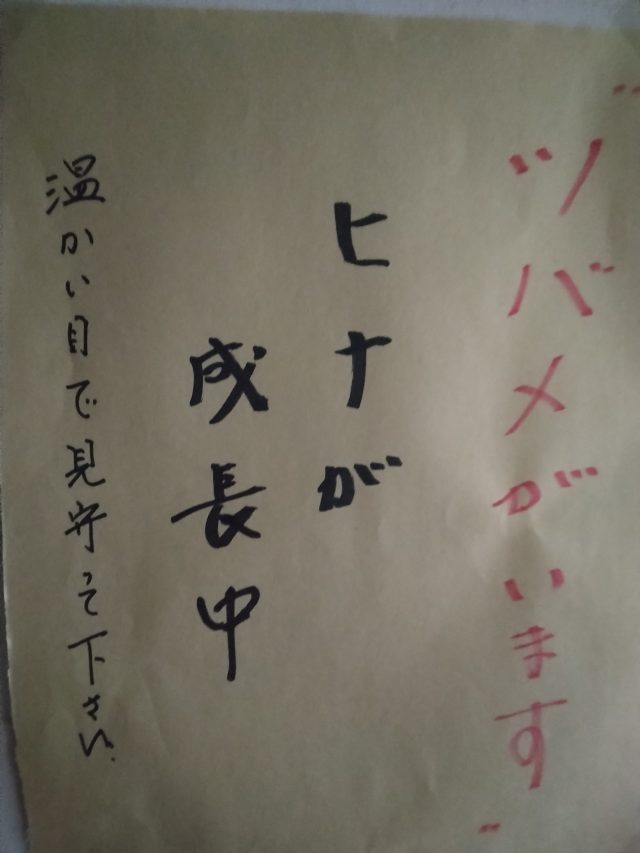 "ツバメがいます"
ヒナが
成長中
温かい目で見守って下さい.